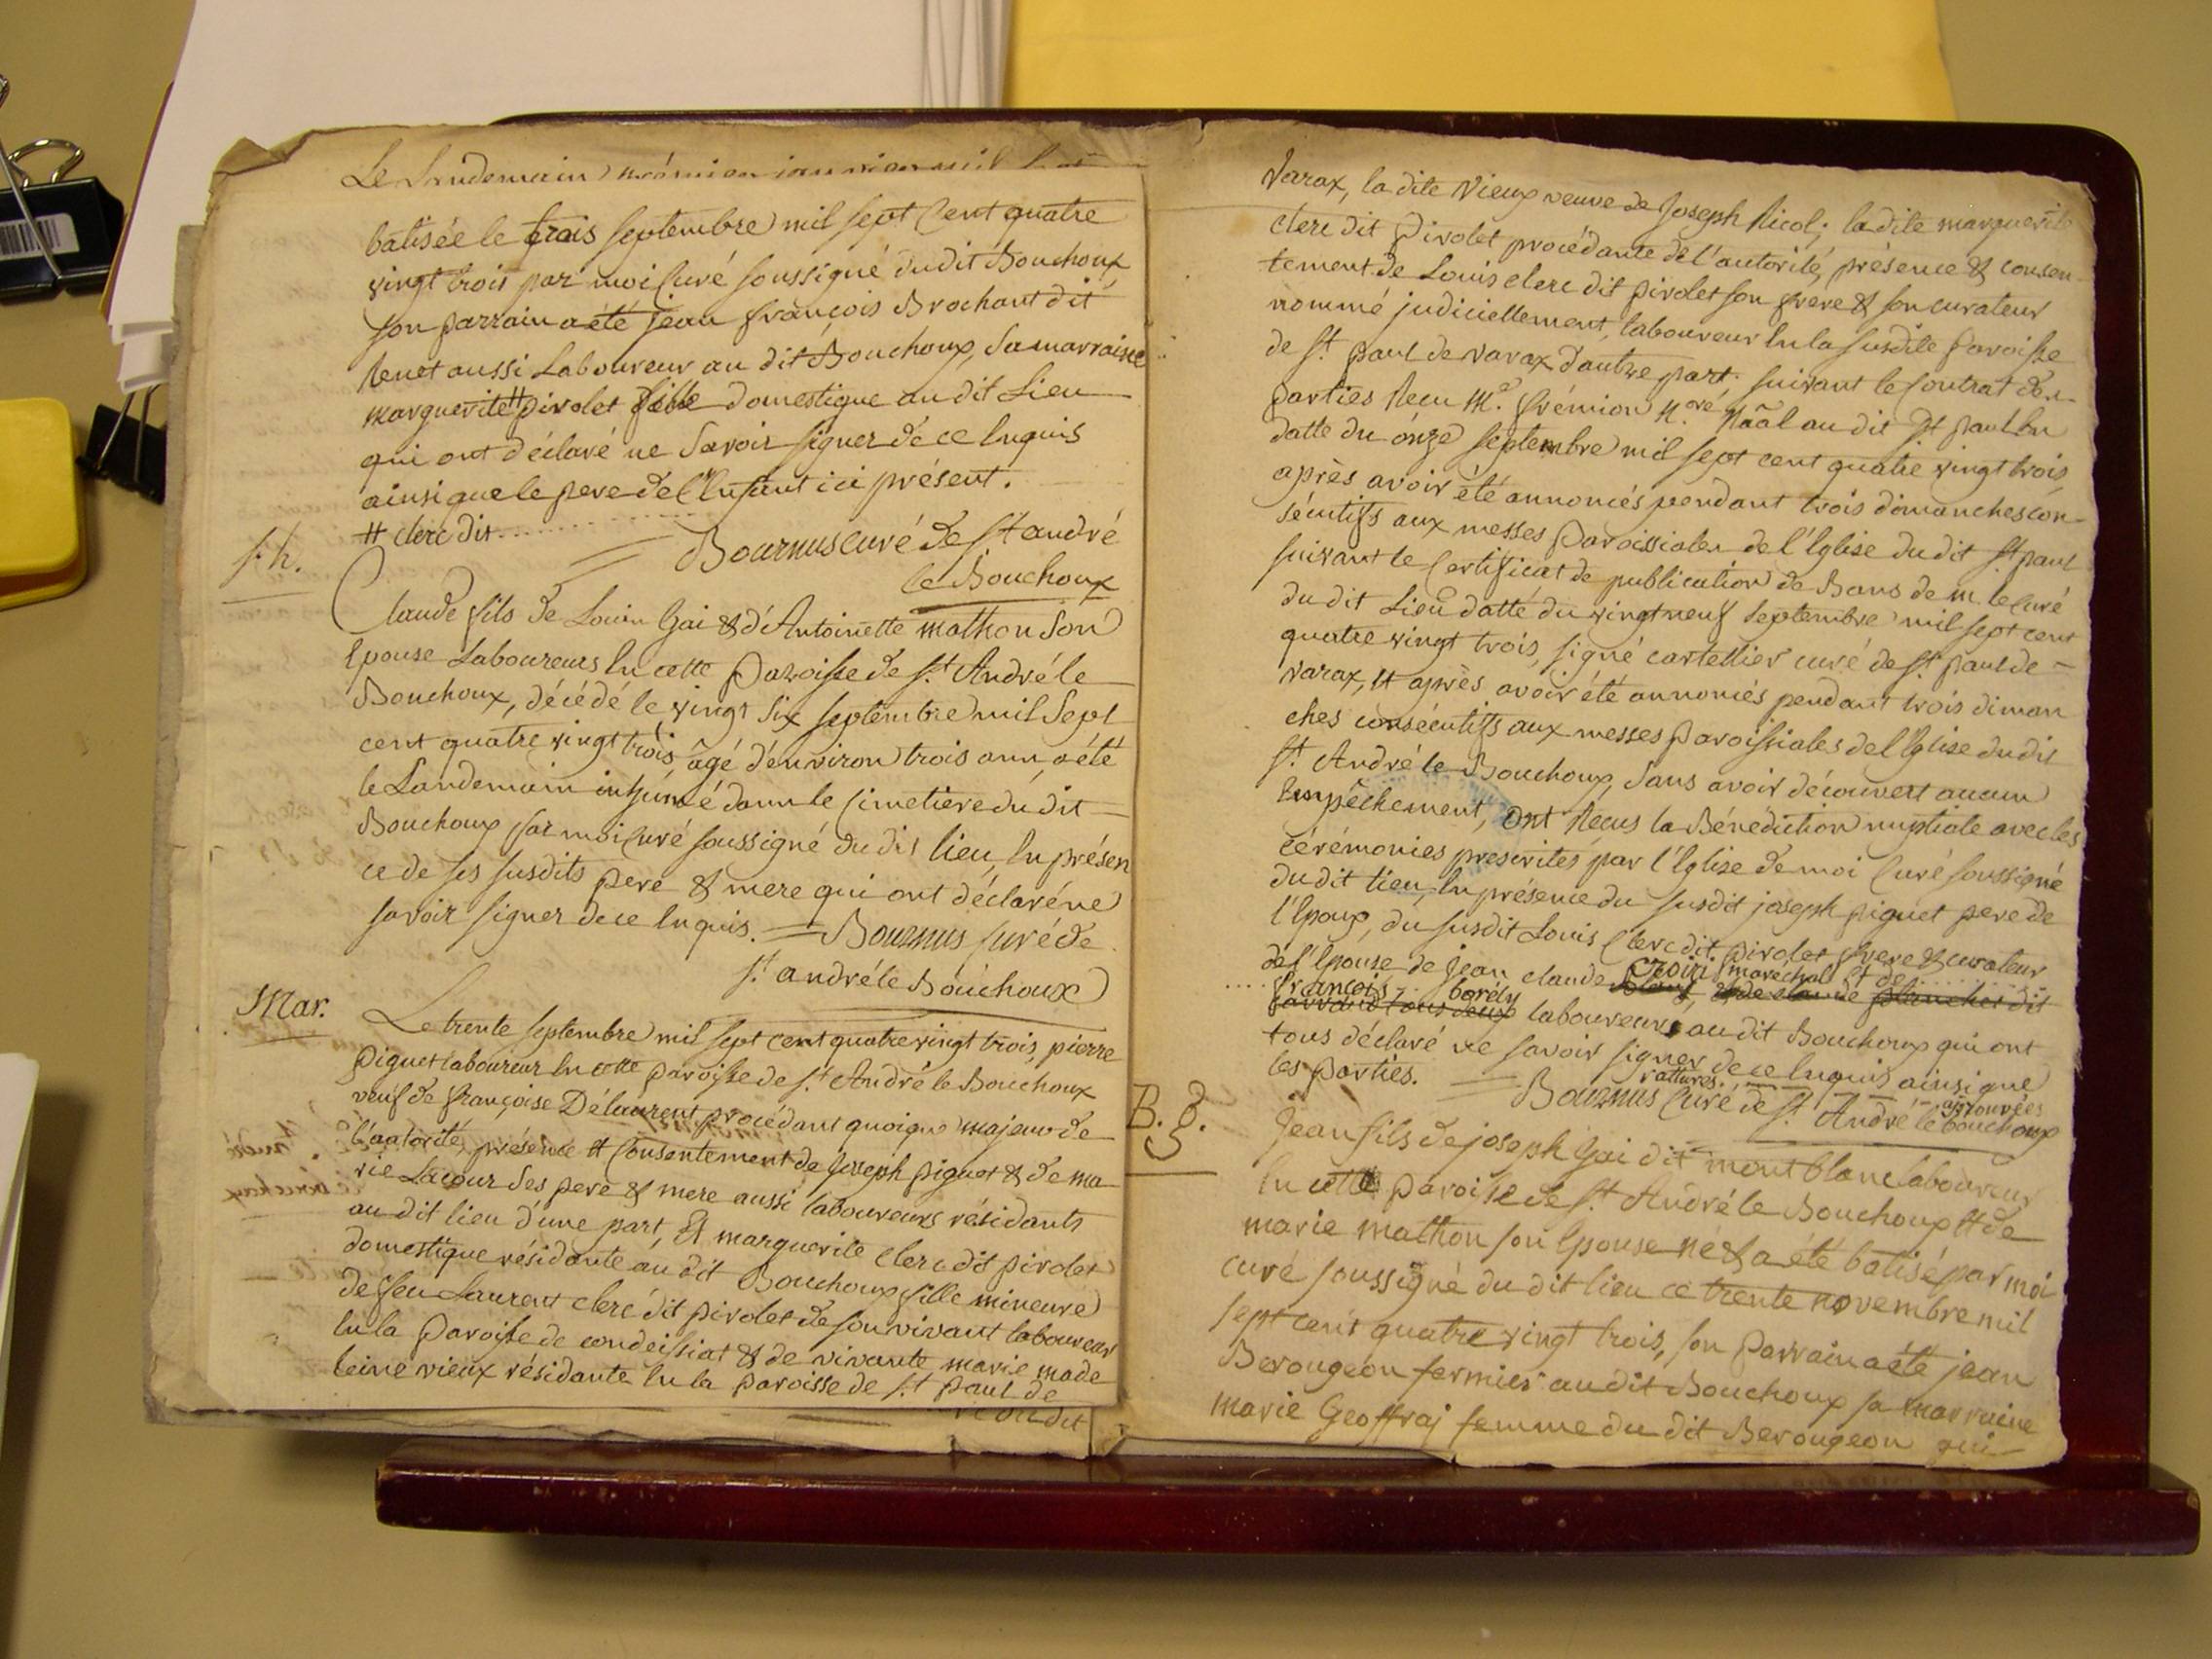 Le Lendemain
batisée le trois septembre mil sept Cent quatre
vingt trois par moi Curé soussigné dudit Bouchoux
son parrain a été jean françois Brochant dit
Renet aussi Laboureur au dit Bouchoux, sa marraine
marguerite # pirolet fille domestique au dit Lieu
qui ont déclaré ne Savoir signer de ce Enquis
ainsi que le pere de l'Enfant ici présent.
# clerc dit
Bournus curé de St andré
le Bouchoux
S. h.
Claude fils de Louis Gai & d'Antoinette mathon Son
Epouse Laboureurs En cette Paroisse de St. André le
Bouchoux, décédé le vingt Six septembre mil Sept
cent quatre vingt trois, âgé d'environ trois ans, a été
le Landemain inhumé dans le Cimetiere du dit
Bouchoux par moi Curé soussigné du dit lieu, En présen
ce de ses susdits pere & mere qui ont déclaré ne
savoir signer de ce Enquis. = Bournus Curé de
St. andré le Bouchoux
Mar.
Le trente septembre mil sept cent quatre vingt trois, pierre
piguet laboureur En cette paroisse de St. André le Bouchoux
veuf de françoise Délaurent procédant quoique majeur de
l'autorité, présence et Consentement de Joseph piguet & de ma
rie Lacour Ses pere & mere aussi laboureurs résidants
au dit lieu d'une part, Et marguerite clerc dit pirolet
domestique résidante au dit Bouchoux fille mineure
de feu Laurent clerc dit pirolet de son vivant laboureur
En la Paroisse de condeissiat & de vivante marie made
leine vieux résidante En la paroisse de St. Paul de
dudit
Varax, la dite Vieux veuve de Joseph Nicol; la dite marguerite
clerc dit Pirolet procédante de l'autorité, présence & consen-
tement de Louis clerc dit pirolet son frere & son curateur
nommé judiciellement, laboureur En la susdite Paroisse
de St. paul de varax d'autre part, suivant le Contrat des
parties Recu Me. frémion Nore. Raal au dit St paul En
datte du onze septembre mil sept cent quatre vingt trois,
après avoir été annoncés pendant trois dimanches con-
sécutifs aux messes Paroissiales de l'Eglise du dit St. paul
suivant le Certificat de publication de Bans de m. le Curé
du dit Lieu datté du vingt neuf Septembre mil sept cent
quatre vingt trois, signé cartellier curé de St. paul de-
varax, Et après avoir été annoncés pendant trois diman
ches consécutifs aux messes Paroissiales de l'Eglise du dit
St. André le Bouchoux, Sans avoir découvert aucun
Empêchement, ont Recus la Bénédiction nuptiale avec les
cérémonies prescrites par l'Eglise de moi Curé soussigné
du dit lieu, En présence du susdit joseph piguet pere de
l'Epoux, du susdit Louis Clerc dit pirolet frere & curateur
de l'Epouse de jean claude maréchal et de
françois borély laboureurs au dit Bouchoux qui ont
tous déclaré ne savoir signer de ce Enquis ainsi que
les parties. ratures approuvées
Bournus Curé de St. André le bouchoux
B. g.
Jean fils de joseph Gai dit montblanc laboureur
En cette paroisse de St. André le Bouchoux et de
marie mathon son Epouse né & a été batisé par moi
curé soussigné du dit lieu ce trente novembre mil
sept cent quatre vingt trois, son parrain a été jean
Berougeon fermier au dit Bouchoux sa marraine
marie Geoffraj femme du dit Berougeon qui